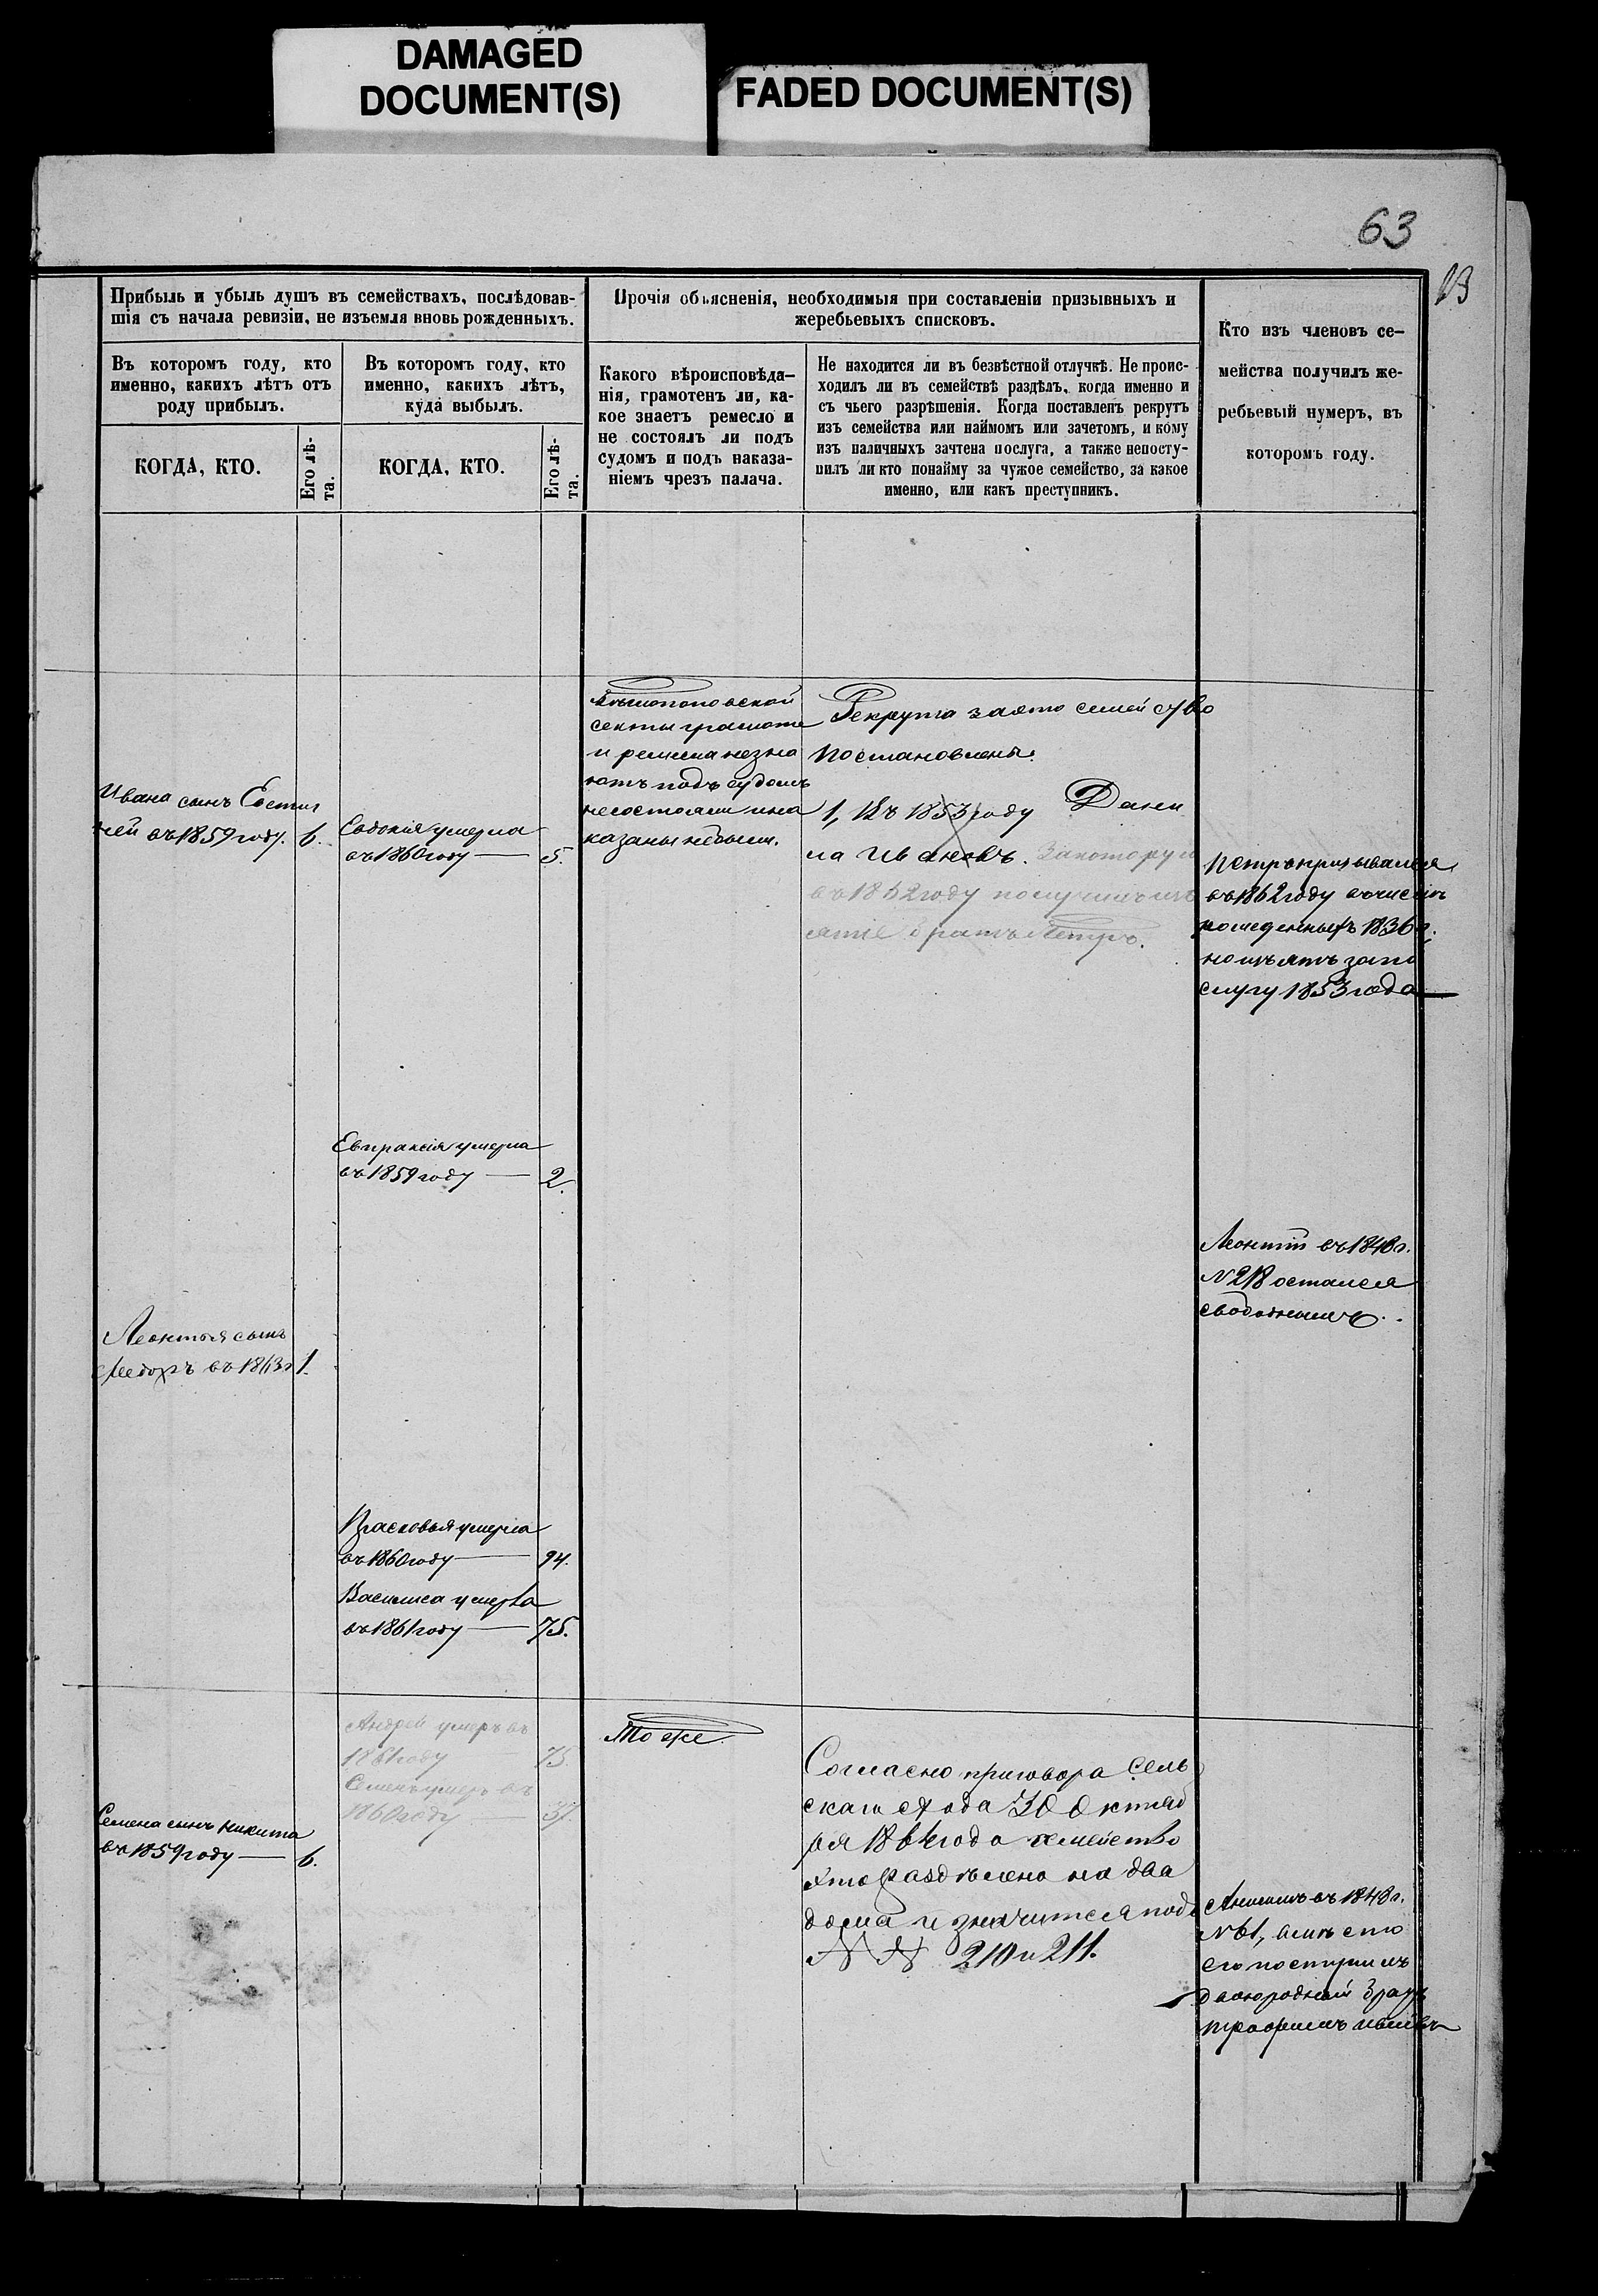 DAMAGED
DOCUMENT(S)
FADED DOCUMENT(S)
63
13
Прибыль и убыль душъ въ семействахъ, послѣдовав-
шія съ начала ревизіи, не изъемля вновь рожденныхъ.
Въ которомъ году, кто
именно, какихъ лѣтъ отъ
роду прибылъ.
КОГДА, КТО.
Его лѣ-
та.
Въ которомъ году, кто
именно, какихъ лѣтъ,
куда выбылъ.
КОГДА, КТО.
Его лѣ-
та.
Прочія объясненія, необходимыя при составленіи призывныхъ и
жеребьевыхъ списковъ.
Какого вѣроисповѣда-
нія, грамотенъ ли, ка-
кое знаетъ ремесло и
не состоялъ ли подъ
судомъ и подъ наказа-
ніемъ чрезъ палача.
Не находится ли въ безвѣстной отлучкѣ. Не проис-
ходилъ ли въ семействѣ раздѣлъ, когда именно и
съ чьего разрѣшенія. Когда поставленъ рекрутъ
изъ семейства или наймомъ или зачетомъ, и кому
изъ наличныхъ зачтена послуга, а также непосту-
пилъ ли кто понайму за чужое семейство, за какое
именно, или какъ преступникъ.
Кто изъ членовъ се-
мейства получилъ же-
ребьевый нумеръ, въ
которомъ году.
Ивана сынъ Евстиг
ней въ 1859 году. 6.
Евдокія умерла
въ 1860 году — 5.
секты грамоте
и ремесла незна
ютъ подъ судомъ
несостояли и на
казаны небыли.
Рекрута за это семейство
постановлены:
1, Въ 1853 году Дани
ла Ивановъ. За которую
въ 1862 году получилъ изъ
ятіе братъ Петръ.
Петръ призывался
въ 1862 году въ числѣ
рожденныхъ 1836 г.
но изъятъ за по
слугу 1853 года
Евпраксія умерла
въ 1859 году — 2.
Леонтій въ 1848 г.
№ 218 остался
свободнымъ.
Леонтья сынъ
Федоръ въ 1863 г 1.
Прасковья умерла
въ 1860 году — 94.
Василиса умерла
въ 1861 году — 75.
Андрей умеръ въ
1861 году — 75
Семенъ умеръ въ
1860 году — 37
Семена сынъ Никита
въ 1859 году — 6.
То же
Согласно приговора Сель
скаго схода 30 Октяб
ря 1864 года семейство
это раздѣлено на два
дома и значится подъ
№ № 210 и 211.
въ 1848 г.
№ 61, вмѣсто
его поступилъ
двоюродный братъ
Трофимъ